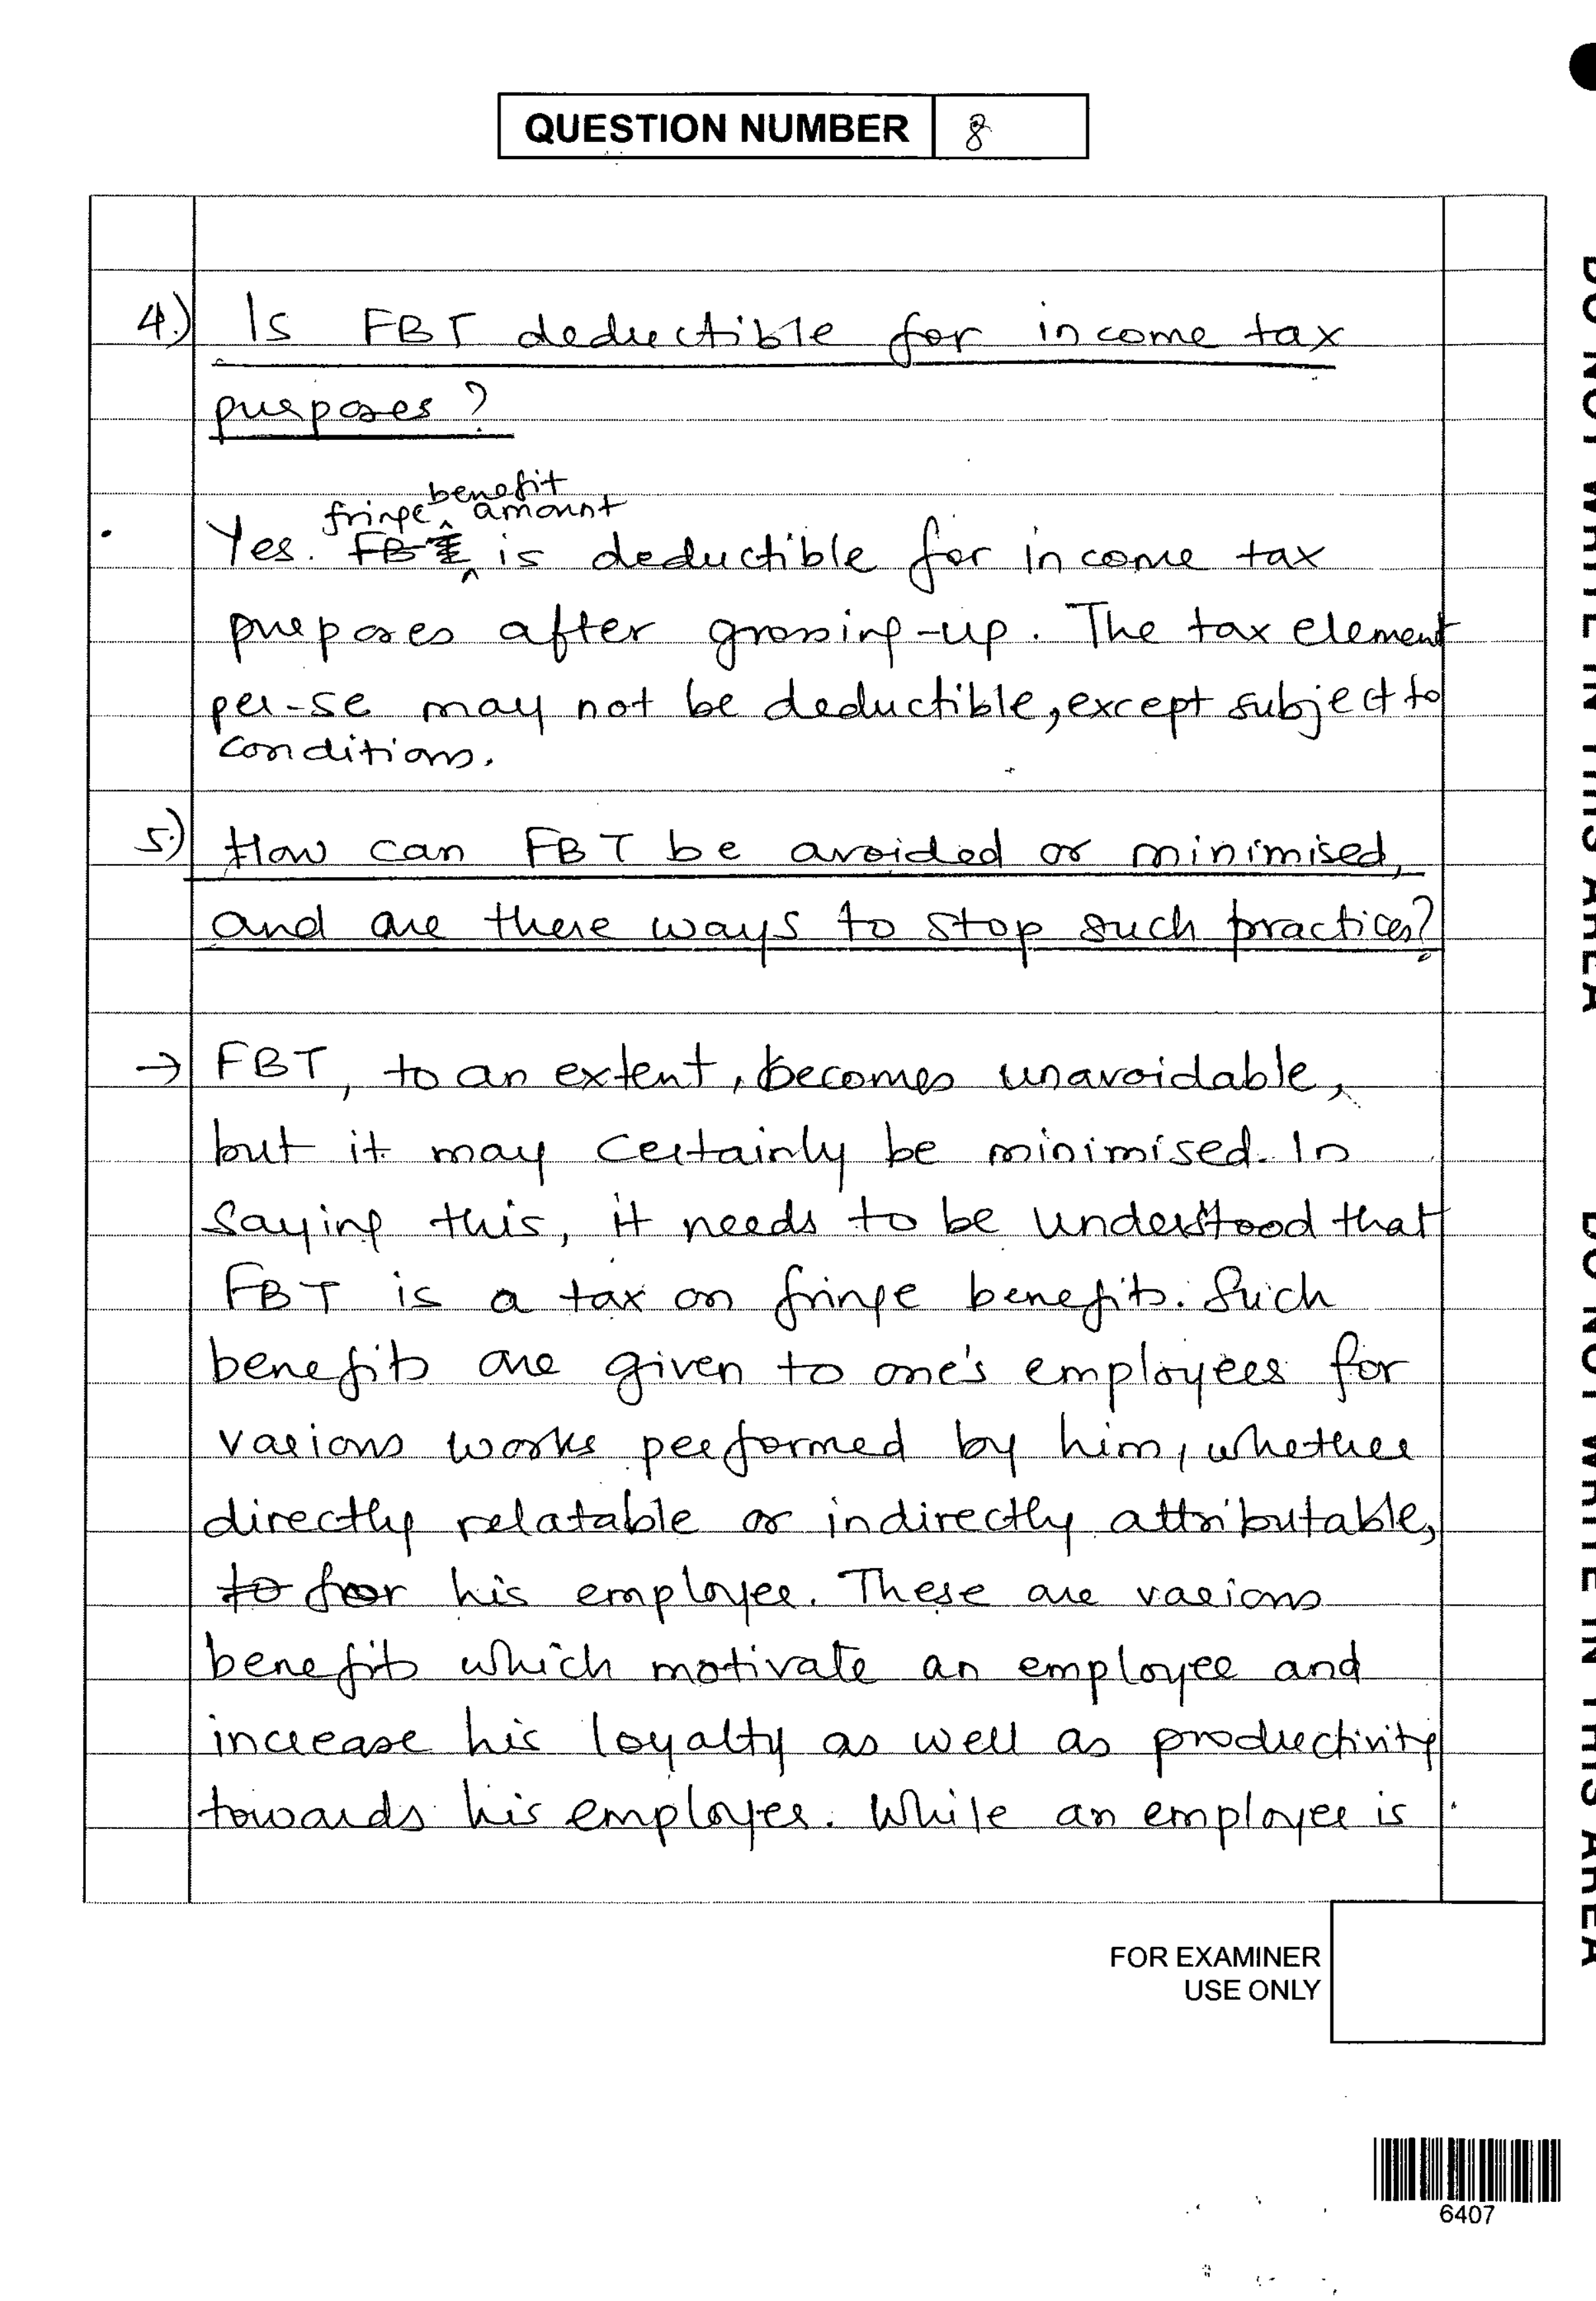 QUESTION NUMBER 8
4.) Is FBT deductible for income tax
purposes?
benefit
fringe amount
Yes. FBT is deductible for income tax
purposes after grossing-up. The tax element
per-se may not be deductible, except subject to
conditions.
5.) How can FBT be avoided or minimised,
and are there ways to stop such practices?
→ FBT, to an extent, becomes unavoidable,
but it may certainly be minimised. In
saying this, it needs to be understood that
FBT is a tax on fringe benefits. Such
benefits are given to one's employees for
various works performed by him, whether
directly relatable or indirectly attributable,
to for his employer. These are various
benefits which motivate an employee and
increase his loyalty as well as productivity
towards his employer. While an employee is
FOR EXAMINER
USE ONLY
6407
DO NOT WRITE IN THIS AREA
DO NOT WRITE IN THIS AREA